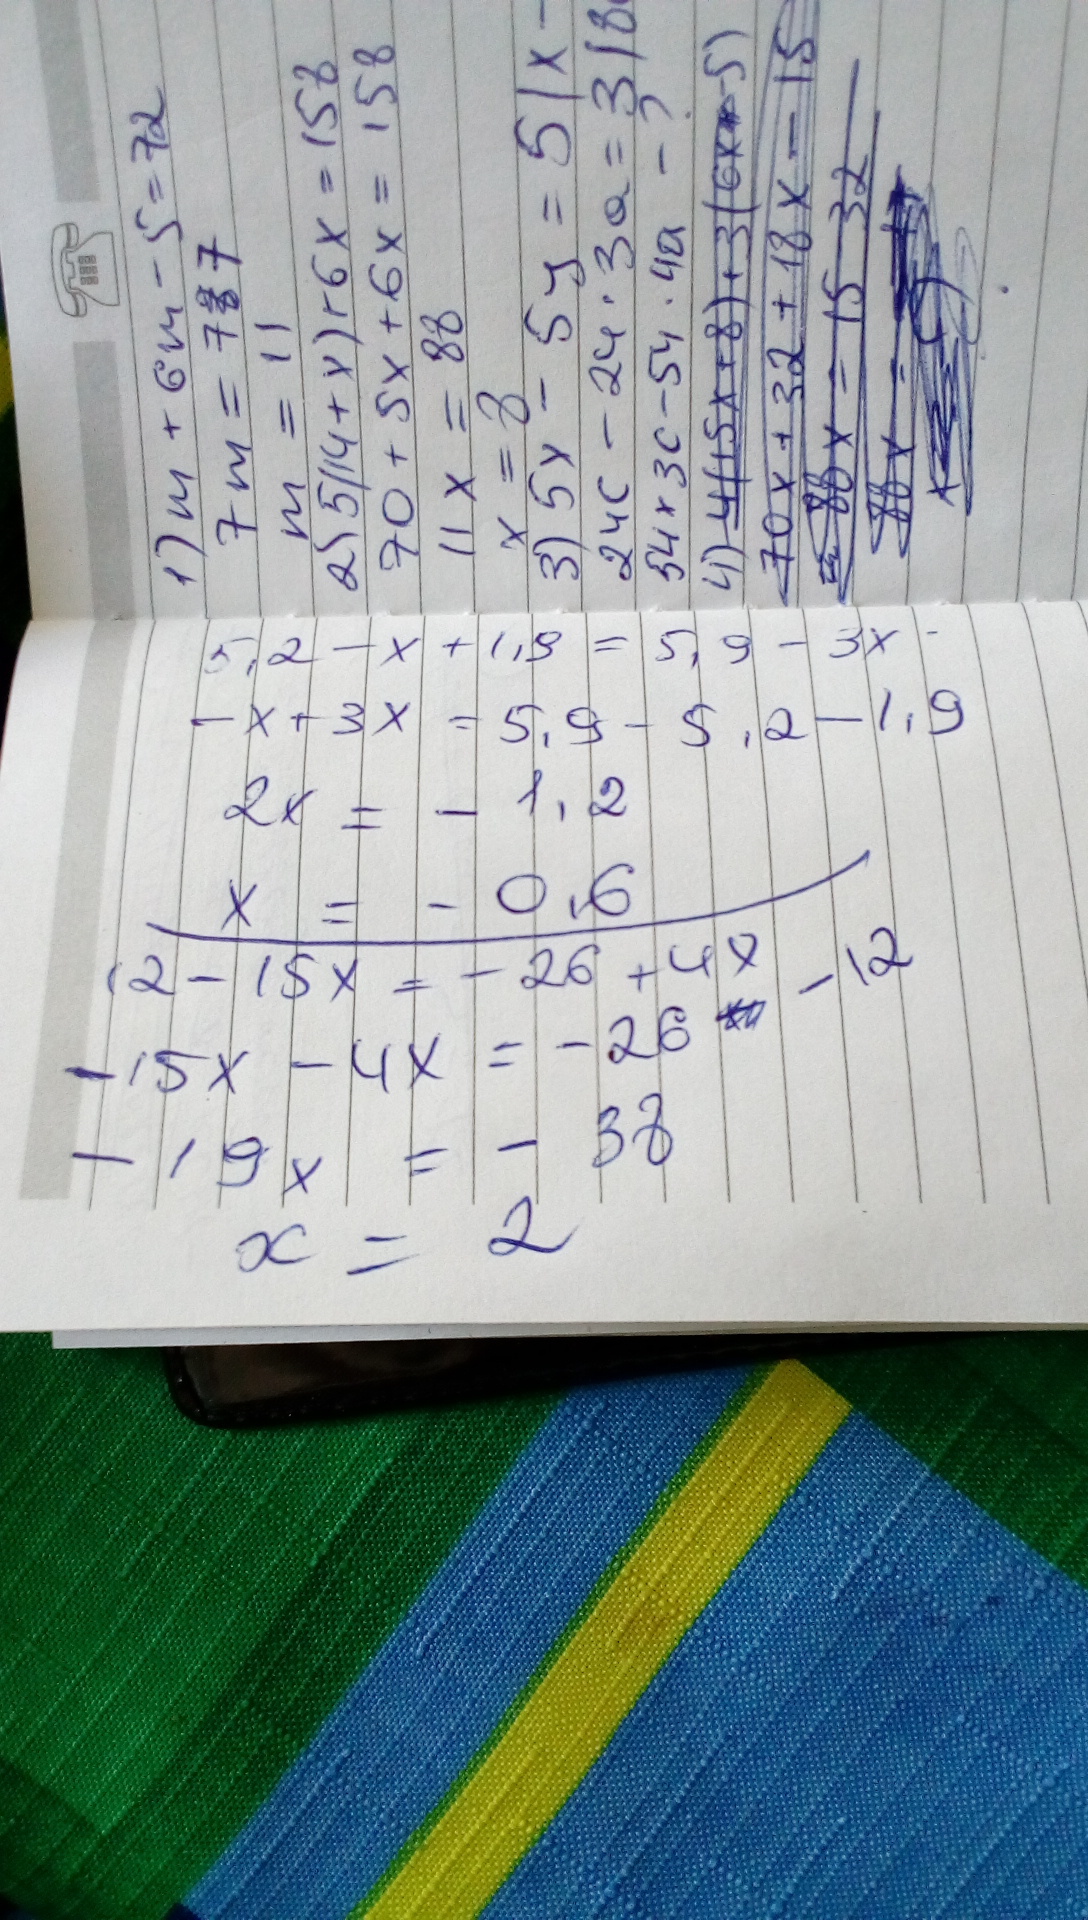 1) m + 6m - 5 = 72
7m = 77
m = 11
2) 5(14 + x) + 6x = 158
70 + 5x + 6x = 158
11x = 88
x = 8
3) 5x - 5y = 5(x -
24c - 24 · 3a = 3(8
54x 3c - 54 · 4a - ?
4) 4(15x + 8) + 3(6x - 5)
70x + 32 + 18x - 15
88x = 15 - 32
88x =
5,2 - x + 1,9 = 5,9 - 3x
- x + 3x = 5,9 - 5,2 - 1,9
2x = - 1,2
x = - 0,6
12 - 15x = - 26 + 4x
- 15x - 4x = - 26 - 12
- 19x = - 38
x = 2